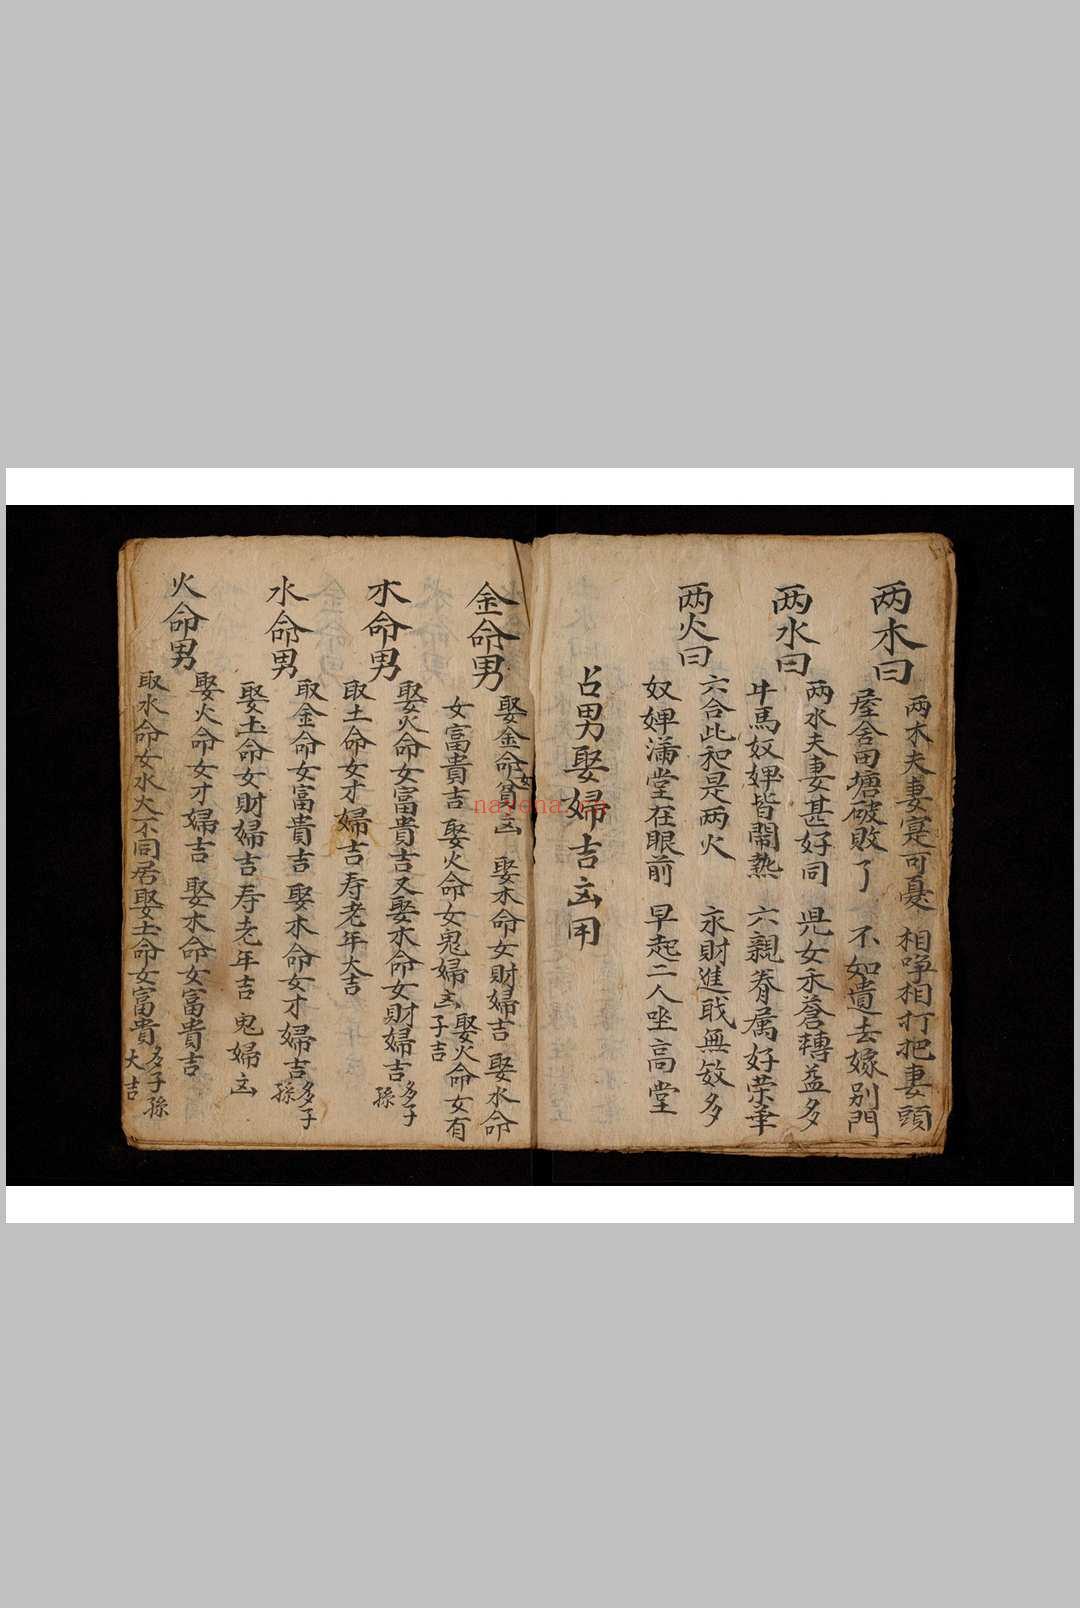 两木曰
两木夫妻寔可憂 相啀相打把妻頭
屋舍田塘破敗了 不如遣去嫁别門
两水曰
两水夫妻甚好同 児女禾蒼轉益多
牛馬奴婢皆鬧熱 六親眷属好荣華
两火曰
六合此和是两火 永財進戝無数多
奴婢滿堂在眼前 早起二人坐高堂
占男娶婦吉凶用
金命男
娶金命女貧凶 娶木命女財婦吉 娶水命
女富貴吉 娶火命女鬼婦凶 娶火命女有
子吉
木命男
娶火命女富貴吉又娶水命女財婦吉 多子
孫
取土命女才婦吉寿老年大吉
水命男
取金命女富貴吉 娶木命女才婦吉 多子
孫
娶土命女財婦吉寿老年吉 鬼婦凶
火命男
娶火命女才婦吉 娶木命女富貴吉
取水命女水火不同居娶土命女富貴 多子孫
大吉
nayona.cn